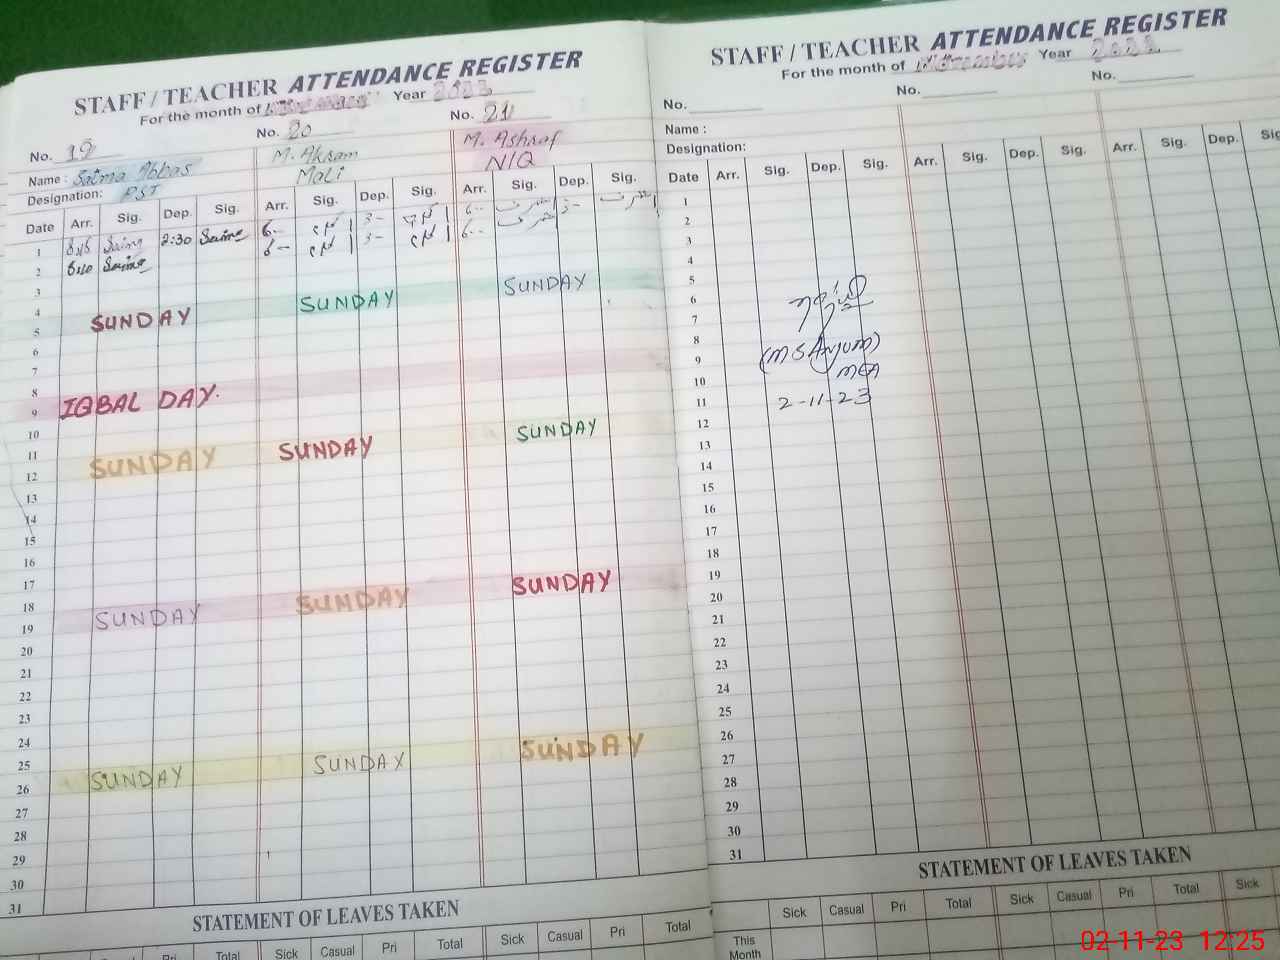 STAFF / TEACHER ATTENDANCE REGISTER
For the month of Year 2023
No. 19 No. 20 No. 21
Name : Saima Abbas M. Akram M. Ashraf
Designation: PST Mali N/Q
Date Arr. Sig. Dep. Sig. Arr. Sig. Dep. Sig. Arr. Sig. Dep. Sig.
1 2:30 Saima 6- اکرم 3- اکرم 6- اشرف 3- اشرف
2 8:10 Saima 6- اکرم 3- اکرم 6- اشرف
3
4
5 SUNDAY SUNDAY SUNDAY
6
7
8
9 IQBAL DAY.
10
11
12 SUNDAY SUNDAY SUNDAY
13
14
15
16
17
18
19 SUNDAY SUNDAY SUNDAY
20
21
22
23
24
25
26 SUNDAY SUNDAY SUNDAY
27
28
29
30
31
STATEMENT OF LEAVES TAKEN
Pri Total Sick Casual Pri Total Sick Casual Pri Total
STAFF / TEACHER ATTENDANCE REGISTER
For the month of November Year 2023
No. No. No.
Name :
Designation:
Date Arr. Sig. Dep. Sig. Arr. Sig. Dep. Sig. Arr. Sig. Dep.
1
2
3
4
5
6
7
8
9 (M S Anjum)
10 MEA
11 2-11-23
12
13
14
15
16
17
18
19
20
21
22
23
24
25
26
27
28
29
30
31
STATEMENT OF LEAVES TAKEN
Sick Casual Pri Total Sick Casual Pri Total Sick
This
Month
02-11-23 12:25